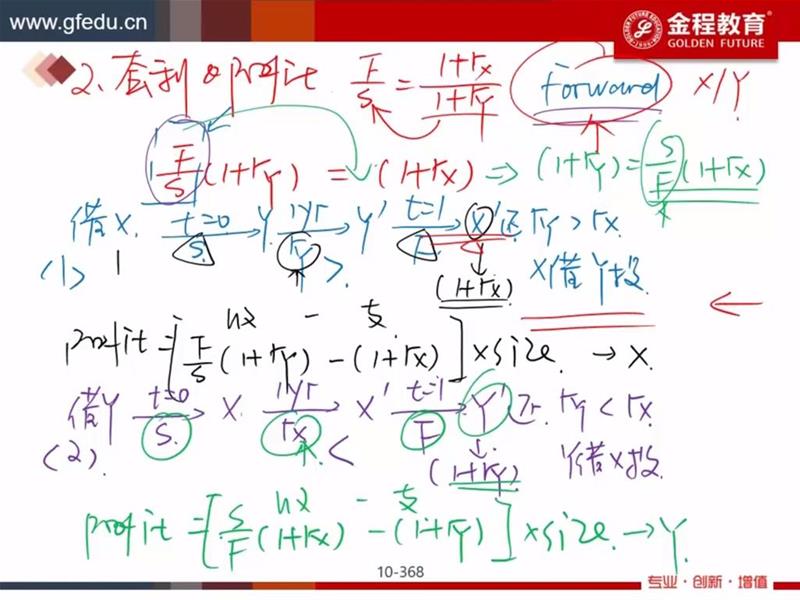 www.gfedu.cn
金程教育
GOLDEN FUTURE
2、套利 & profit F/S = 1+rx/1+ry Forward X/Y
F/S (1+ry) = (1+rx) ⇒ (1+ry) = S/F (1+rx)
借X. t=0 S. → Y 1yr ry → Y' t=1 F → X' 还 ry > rx.
(1) 1 > (1+rx) X借Y投.
收 - 支.
profit = [F/S (1+ry) - (1+rx)] × size. → X.
借Y t=0 S. → X. 1yr rx → X' t=1 F → Y' 还. ry < rx.
(2). < (1+ry) Y借X投.
收 - 支
profit = [S/F (1+rx) - (1+ry)] × size. → Y.
10-368
专业·创新·增值